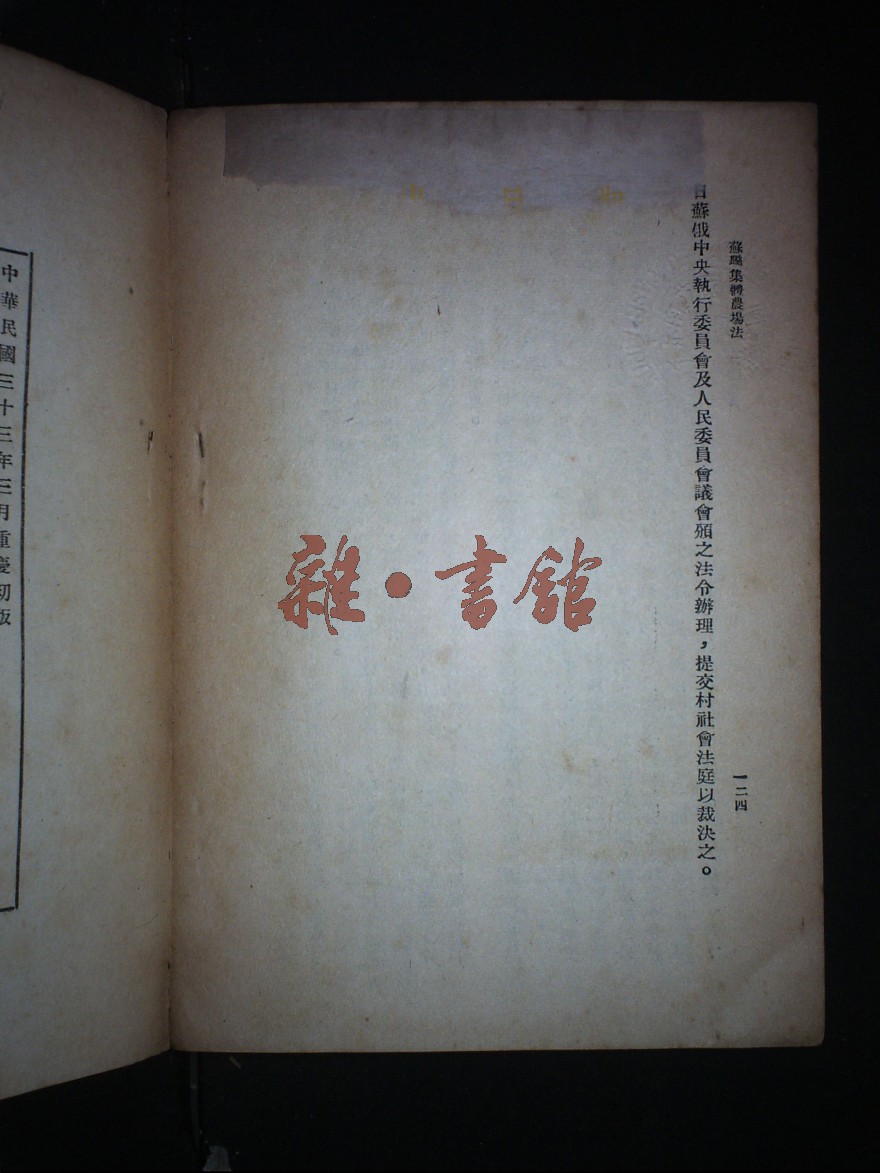 蘇聯集體農場法
一二四
日蘇俄中央執行委員會及人民委員會議會頒之法令辦理，提交村社會法庭以裁決之。
雜·書館
中華民國三十三年三月重慶初版